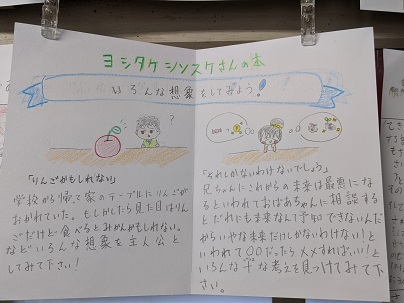 ヨシタケシンスケさんの本
いろんな想象をしてみよう!
?
「りんごかもしれない」
学校から帰って家のテーブルにりんごが
おかれていた。もしかしたら見た目はりん
ごだけど食べるとみかんかもしれない。
などいろんな想象を主人公と
してみて下さい!
「それしかないわけないでしょう」
兄ちゃんにこれからの未来は最悪にな
るといわれておばあちゃんに相談する
とだれにも未来なんて予知できないんだ
からいやな未来だけしかないわけない!と
いわれて〇〇だったら××すればいい!と
いろんな な考えを見つけてみて下
さい。